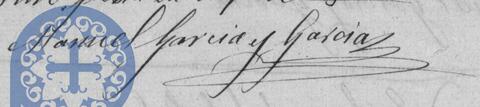 Manuel Garcia y Garcia